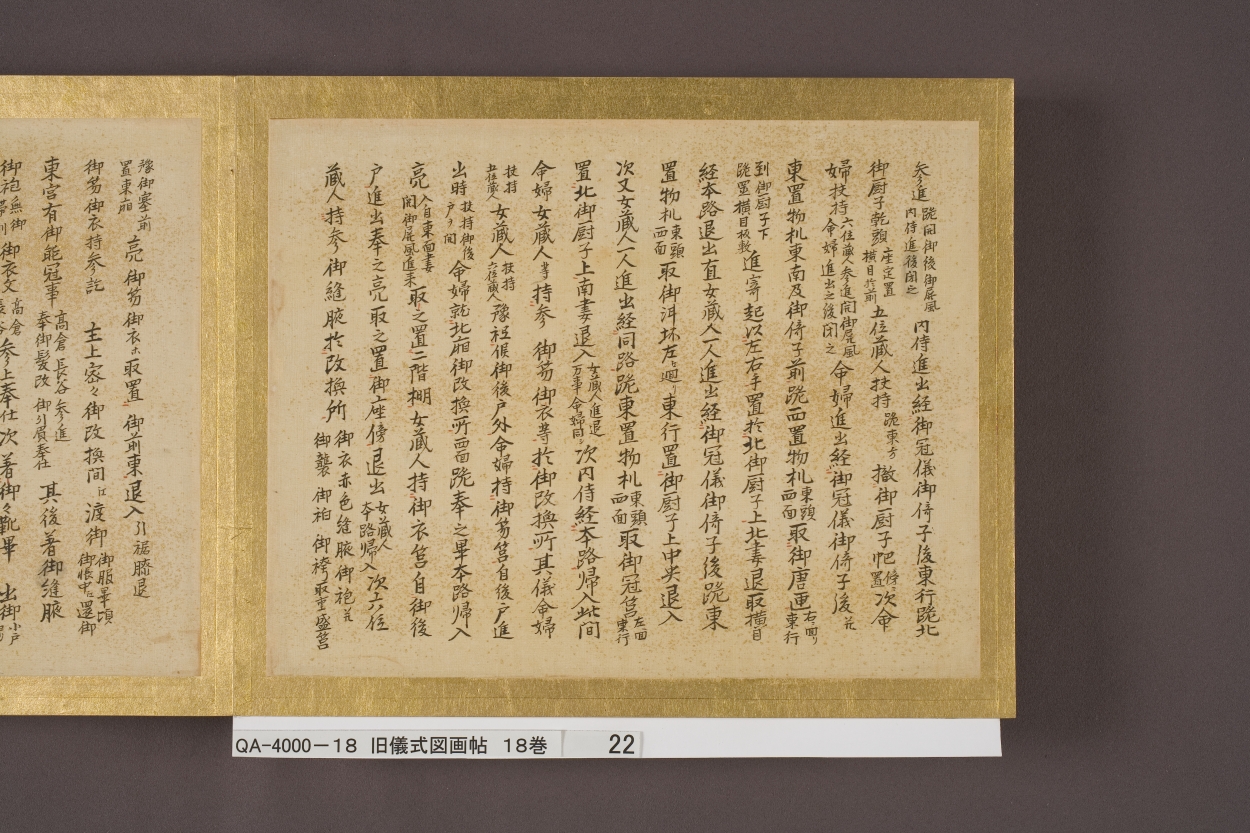 参進跪開御後御屏風内侍進後閉之 内侍進出経御冠儀御倚子後東行跪北
御厨子乾頭座定置横目於前 五位蔵人扶持跪東方 撤御厨子帊傍置 次命
婦扶持六位蔵人参進開御屏風命婦進出之後閉之 命婦進出経御冠儀御倚子後并
東置物札東南及御倚子前跪西置物札東頭西面 取御唐匣右廻東行
到御厨子下跪置横目板敷 進寄起以左右手置於北御厨子上北妻退取横目
経本路退出直女蔵人一人進出経御冠儀御倚子後跪東
置物札東頭西面 取御泔坏左廻東行置御厨子上中央退入
次又女蔵人一人進出経同路跪東置物札東頭西面 取御冠筥左面東行
置北御厨子上南妻退入女蔵人進退万事命婦同 次内侍経本路帰入此間
命婦女蔵人等持参 御笏御衣等於御改換所其儀命婦
扶持五位蔵人 女蔵人扶持六位蔵人 豫祗候御後戸外命婦持御笏筥自後戸進
出時扶持御後戸ヲ開 命婦就北廂御改換所西面跪奉之畢本路帰入
亮入自東面妻開御屏風進来 取之置二階棚女蔵人持御衣筥自御後
戸進出奉之亮取之置御座傍退出女蔵人本路帰入 次六位
蔵人持参御縫腋於改換所御衣赤色縫腋御袍并御襲御衵御袴取重盛筥
豫御塞前置東廂 亮御笏御衣ホ取置 御前東退入引裾膝退
御笏御衣持参訖 主上密々御改換間 渡御御服畢頃御帳中還御
東宮有御能冠事高倉長谷参進奉御髪改御引直奉仕 其後着御縫腋
御袍無御 御衣文高倉長谷 参上奉仕次着御々靴畢 出御小戸